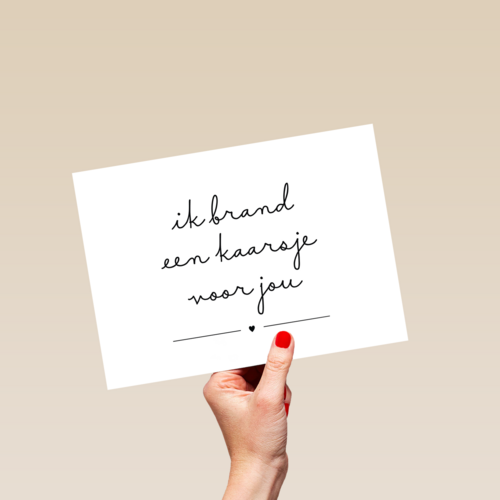 ik brand
een kaarsje
voor jou